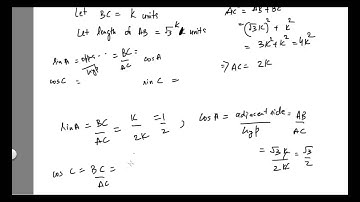 Let BC = K units
Let length of AB = √3 K units
AC² = AB² + BC²
= (√3K)² + K²
= 3K² + K² = 4K²
⇒ AC = 2K
sin A = = BC/AC cos A
cos C = sin C =
sin A = BC/AC = K/2K = 1/2 ; cos A = adjacent side/hyp = AB/AC
= √3K/2K = √3/2
cos C = BC/AC =